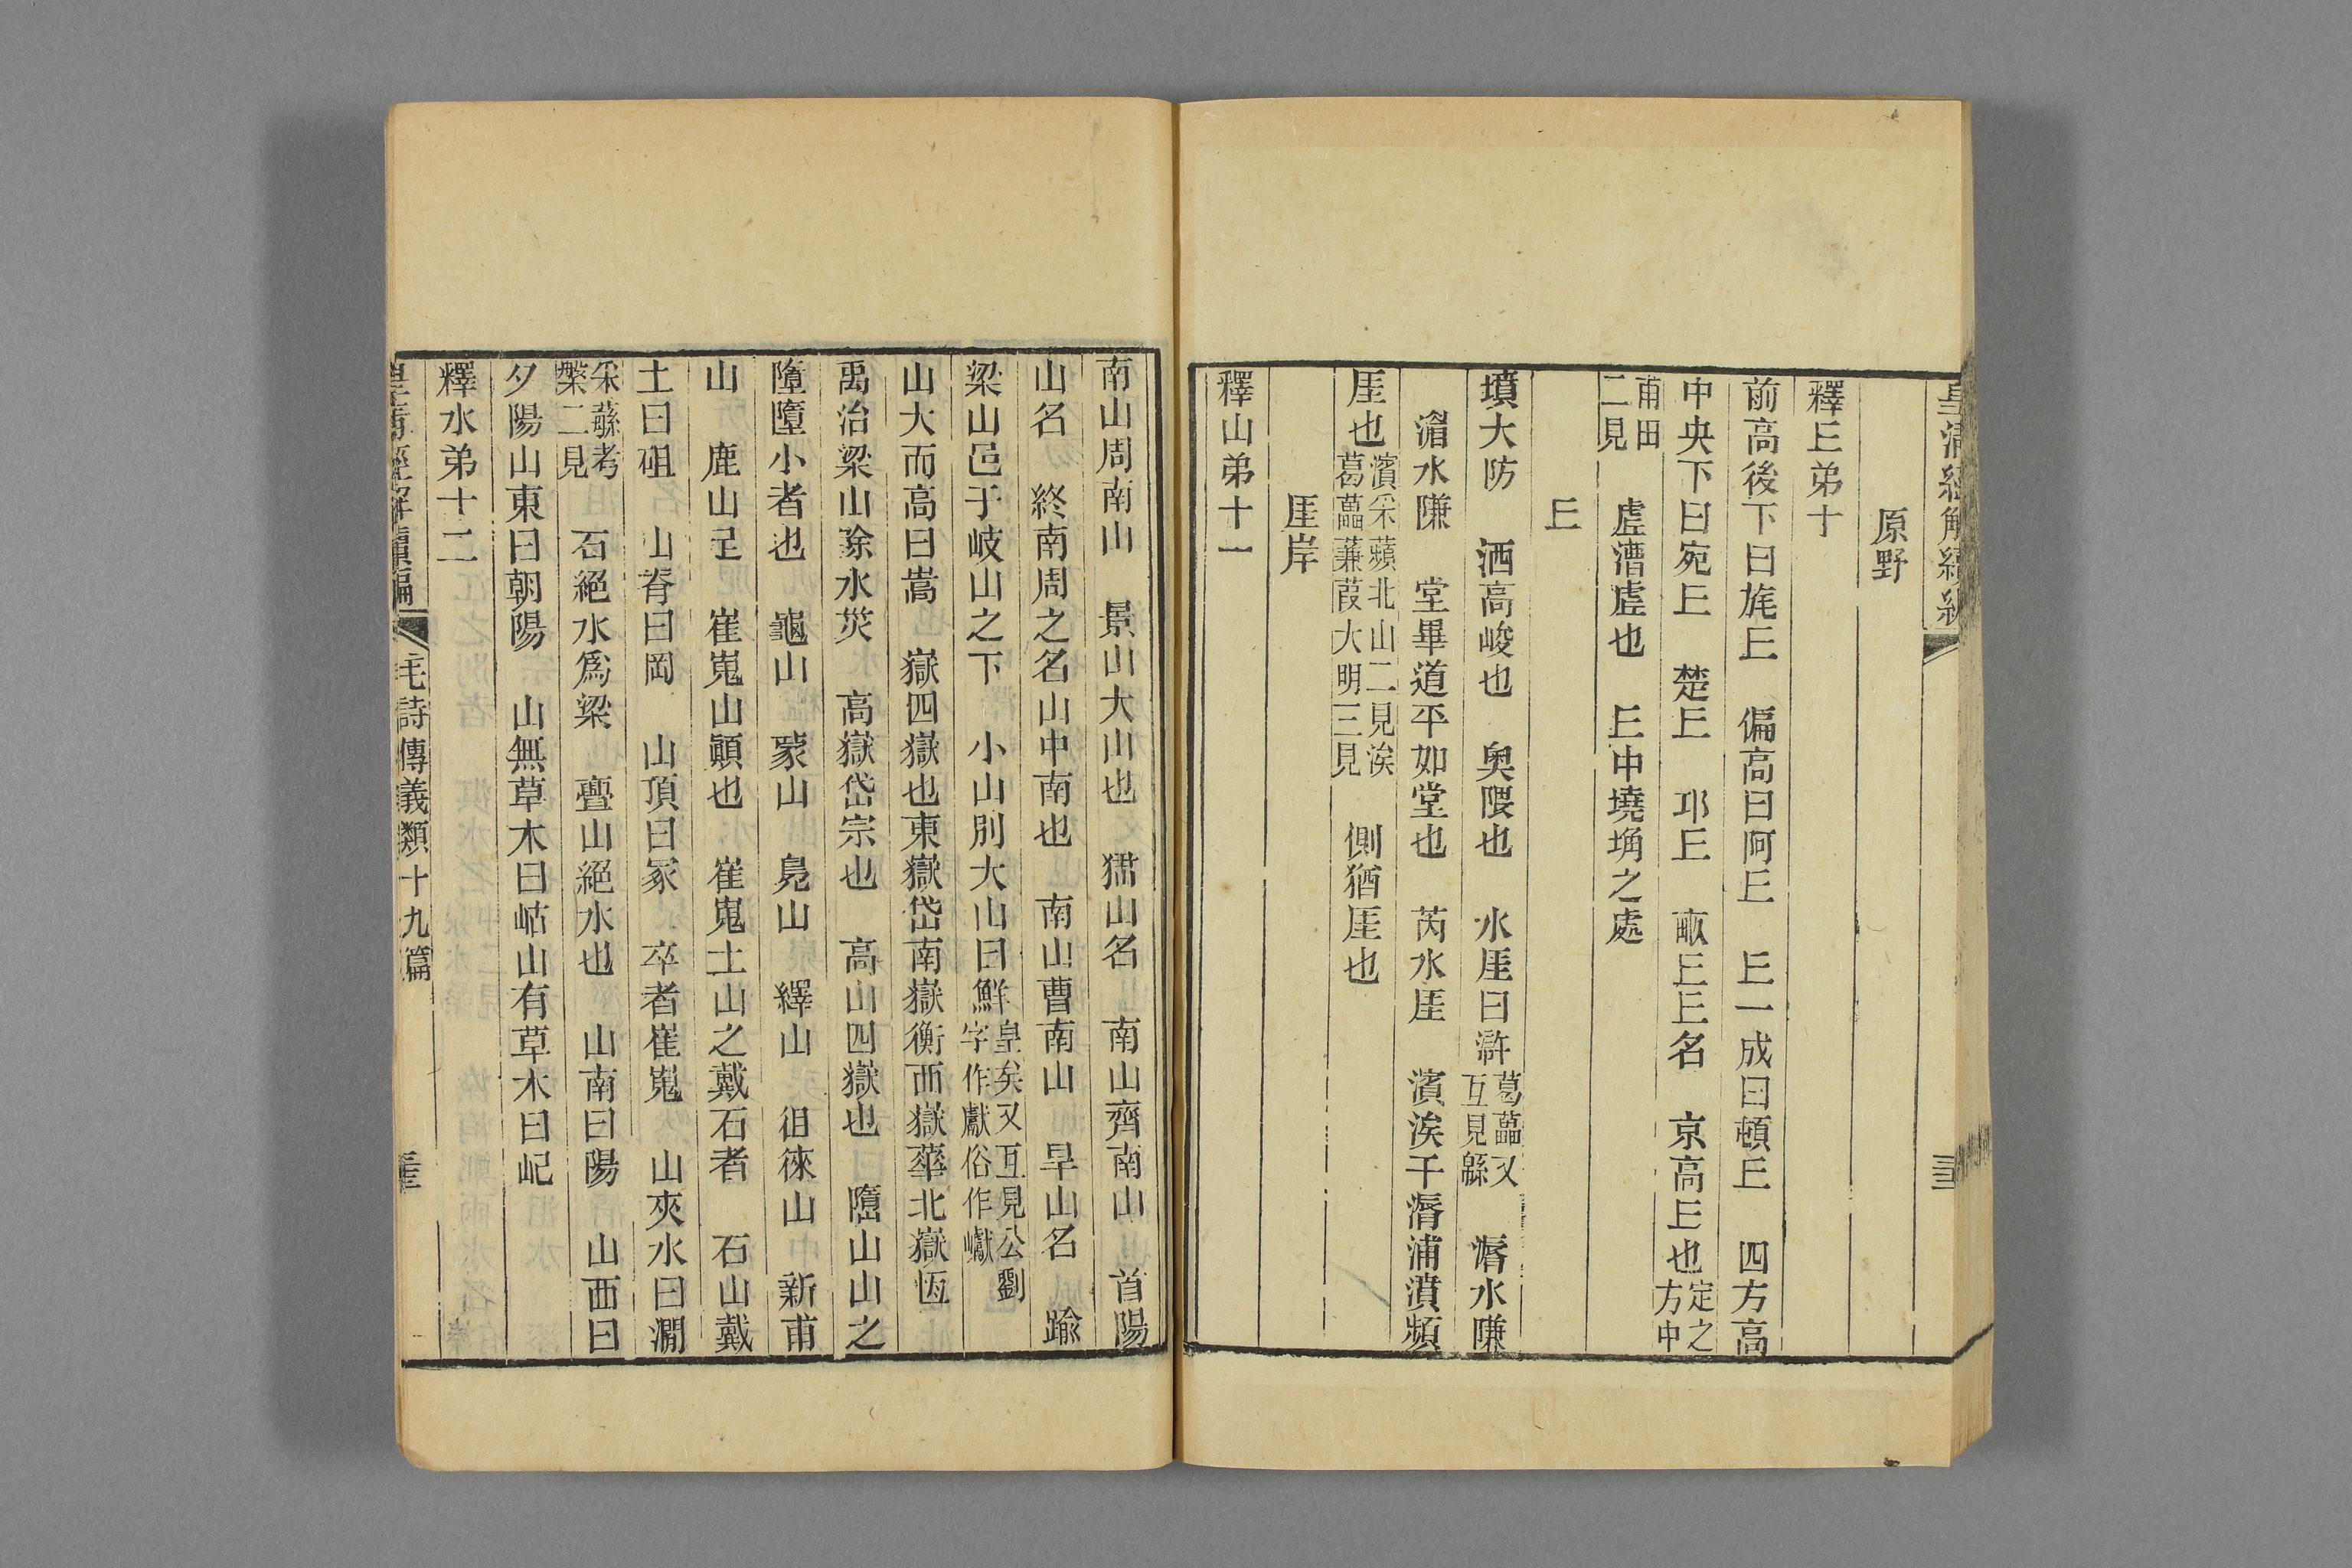 皇清經解續編
原野
釋𠀉弟十
前高後下曰旄𠀉　偏高曰阿𠀉　𠀉一成曰頓𠀉　四方高
中央下曰宛𠀉　楚𠀉　邛𠀉　畝𠀉𠀉名　京高𠀉也定之方中
甫田二見　虛漕虛也　𠀉中墝埆之處
𠀉
墳大防　洒高峻也　奧隈也　水厓曰滸葛藟又互見緜　漘水隒
湄水隒　堂畢道平如堂也　芮水厓　濱涘干漘浦濆頻
厓也濱采蘋北山二見涘葛藟蒹葭大明三見　側猶厓也
厓岸
釋山弟十一
南山周南山　景山大山也　猺山名　南山齊南山　首陽
山名　終南周之名山中南也　南山曹南山　旱山名　踰
梁山邑于岐山之下　小山別大山曰鮮皇矣又互見公劉字作獻俗作巘
山大而高曰嵩　嶽四嶽也東嶽岱南嶽衡西嶽華北嶽恆
禹治梁山除水災　高嶽岱宗也　高山四嶽也　隨山山之
隨墮小者也　龜山　蒙山　鳧山　繹山　徂徠山　新甫
山　鹿山足　崔嵬山顚也　崔嵬土山之戴石者　石山戴
土曰砠　山脊曰岡　山頂曰冢　卒者崔嵬　山夾水曰澗
采蘩考槃二見　石絕水爲梁　亹山絕水也　山南曰陽　山西曰
夕陽山東曰朝陽　山無草木曰岵山有草木曰屺
釋水弟十二
皇清經解續編　毛詩傳義類十九篇